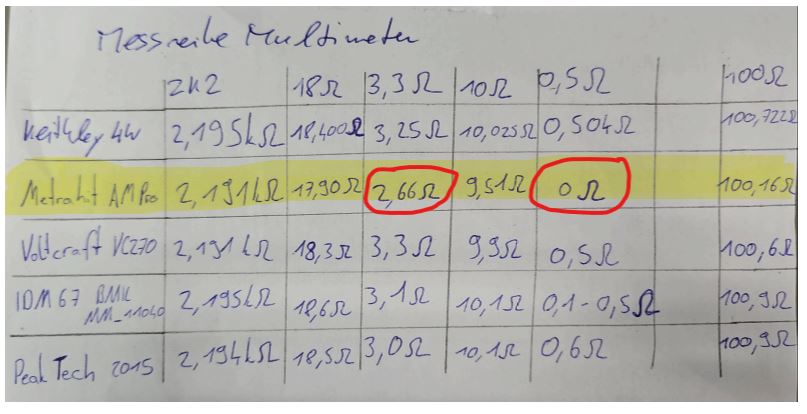 Messreihe Multimeter
2k2 18Ω 3,3Ω 10Ω 0,5Ω 100Ω
Keithley 4W 2,195kΩ 18,400Ω 3,25Ω 10,025Ω 0,504Ω 100,722Ω
Metrahit AM Pro 2,191kΩ 17,90Ω 2,66Ω 9,51Ω 0Ω 100,16Ω
Voltcraft VC270 2,191kΩ 18,3Ω 3,3Ω 9,9Ω 0,5Ω 100,6Ω
IDM67 BMK 2,195kΩ 18,6Ω 3,1Ω 10,1Ω 0,1-0,5Ω 100,9Ω
MM_11040
PeakTech 2015 2,194kΩ 18,5Ω 3,0Ω 10,1Ω 0,6Ω 100,9Ω